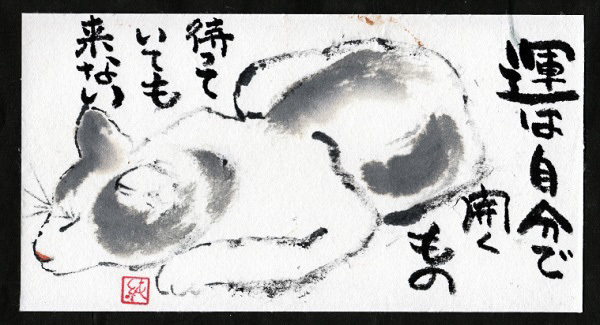 運は自分で
開く
もの
待って
いても
来ない